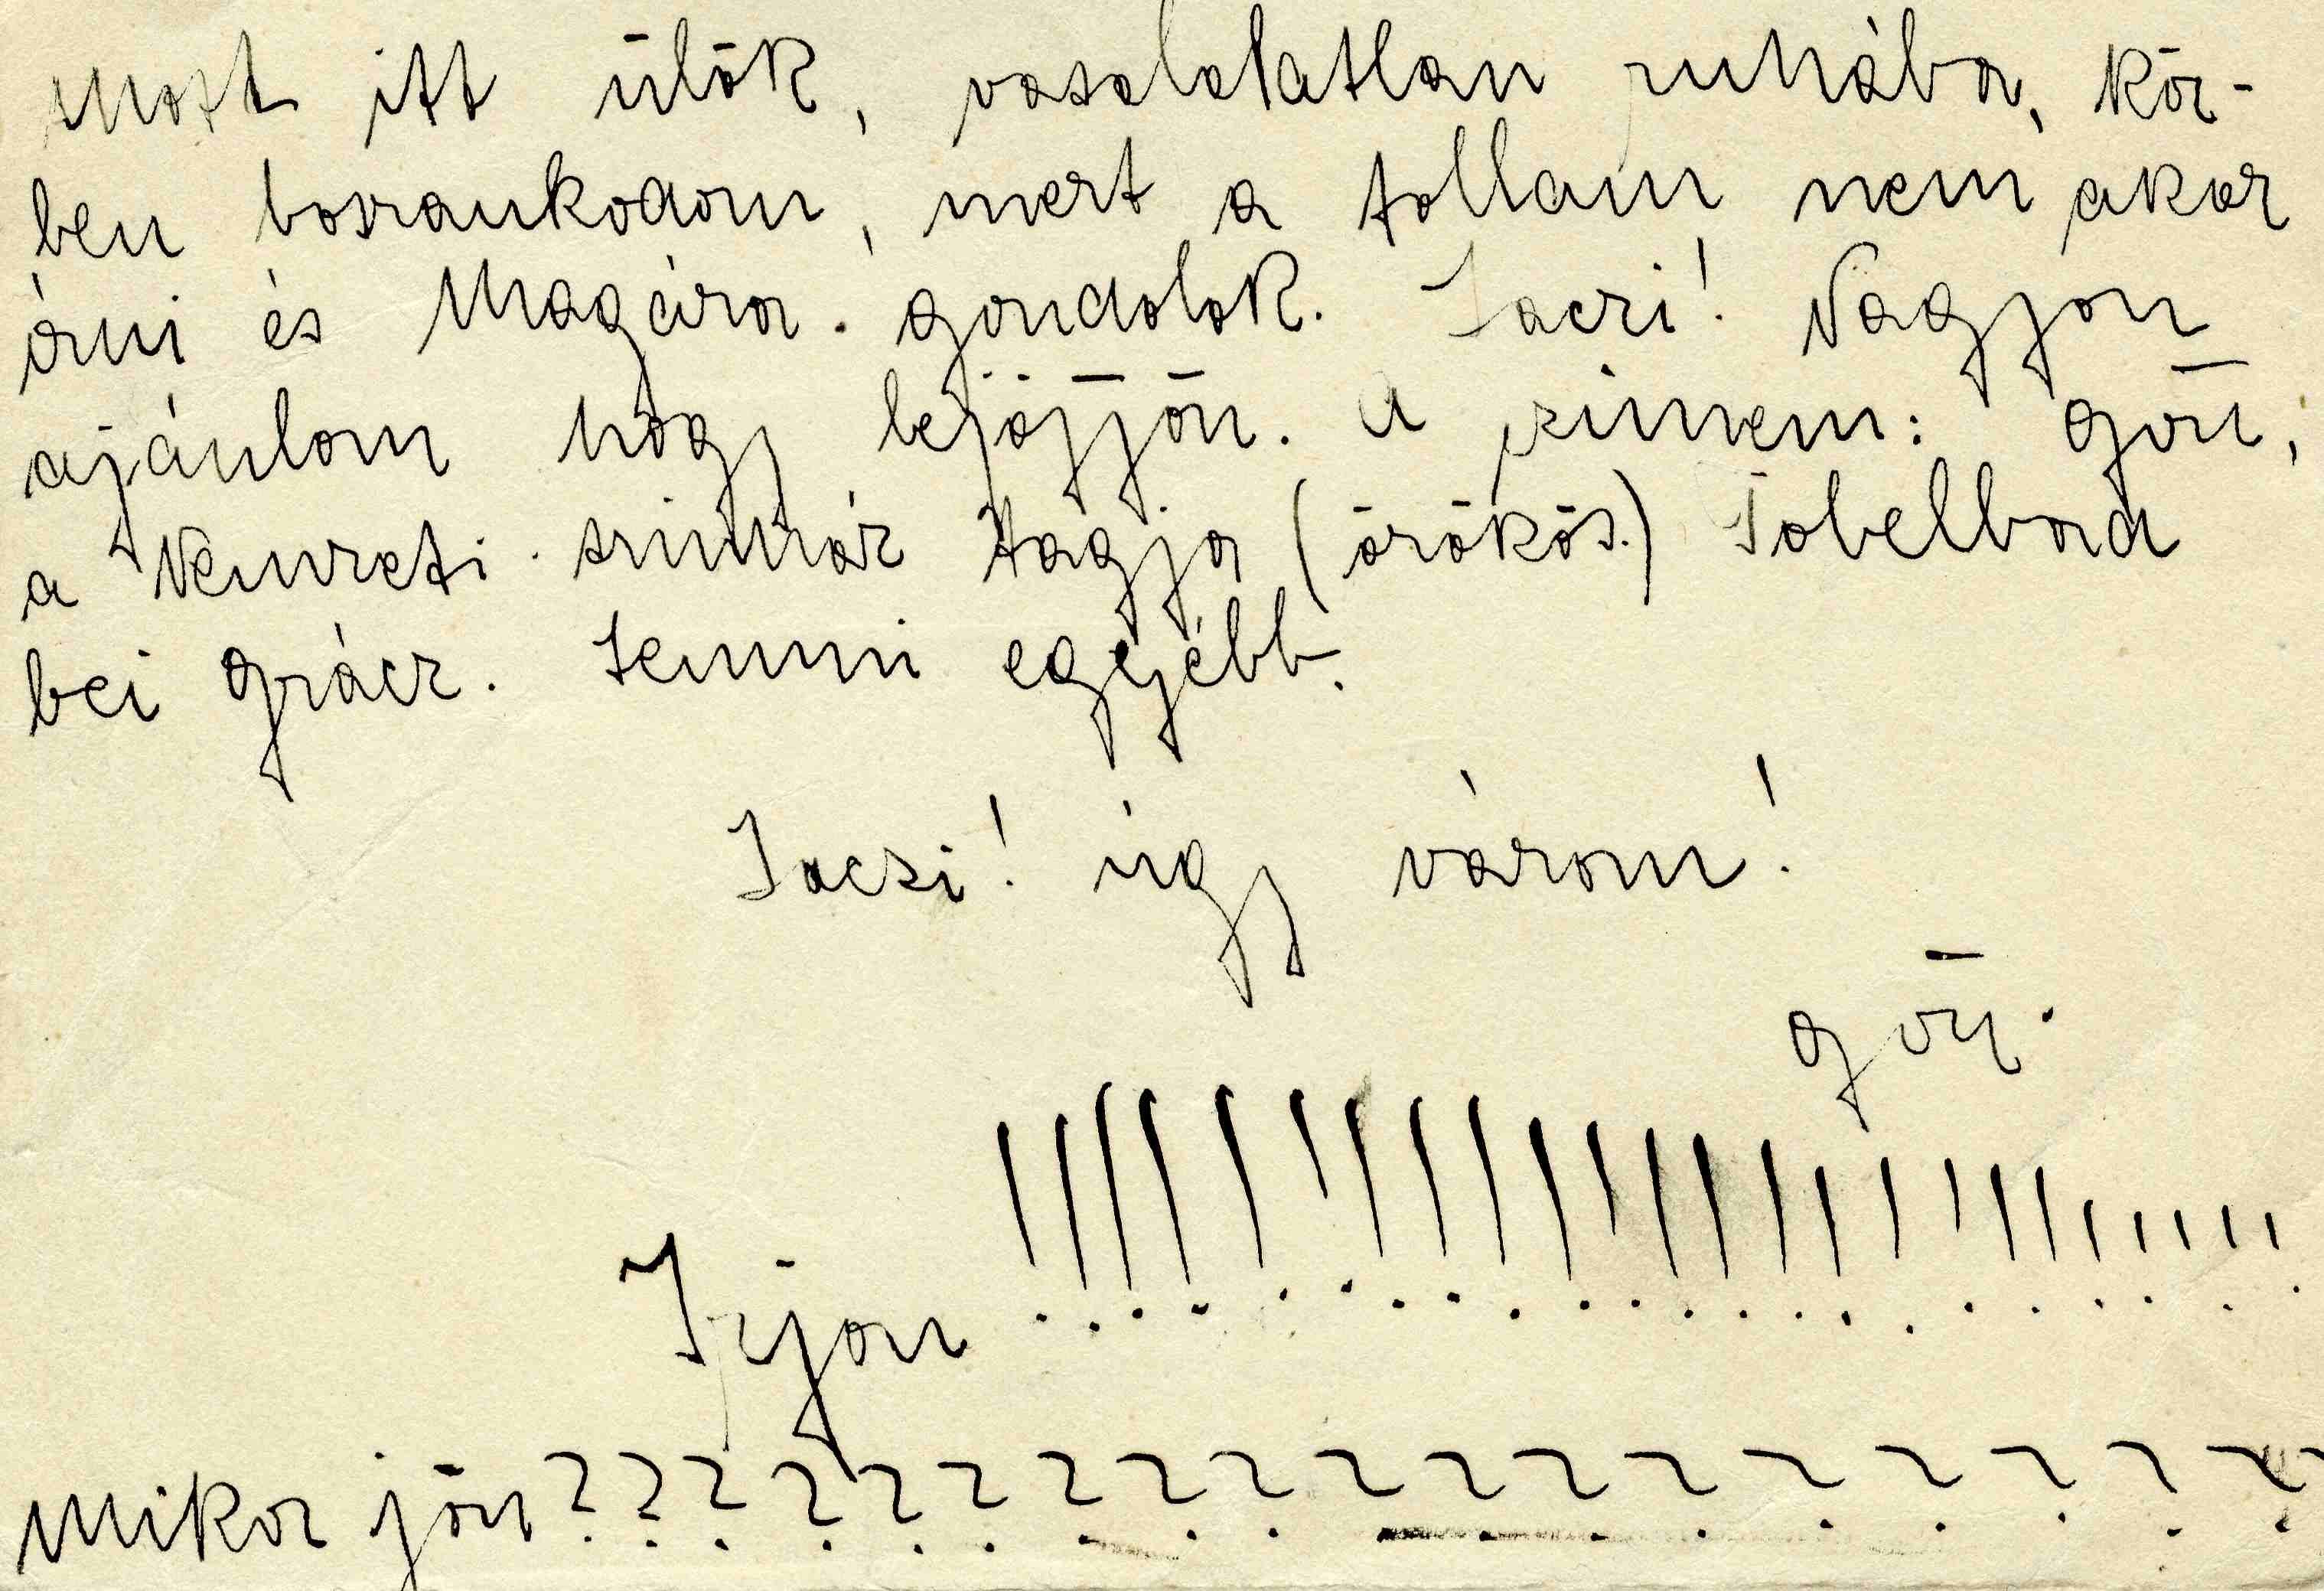 Most itt ülök, vasalatatlan ruhába, kör-
ben boszankodom, mert a tollam nem akar
írni és Magára gondolok. Jaczi! Nagyon
ajánlom hogy lejöjjön. A czimem:
a Nemzeti szinház tagja (örökös.) Tobelbad
bei Grácz. Semmi egyébb.
Jaczi! úgy várom!
Irjon !!!!!!!!!!!!!!!!!!!!!!!!
Mikor jön ??????????????????